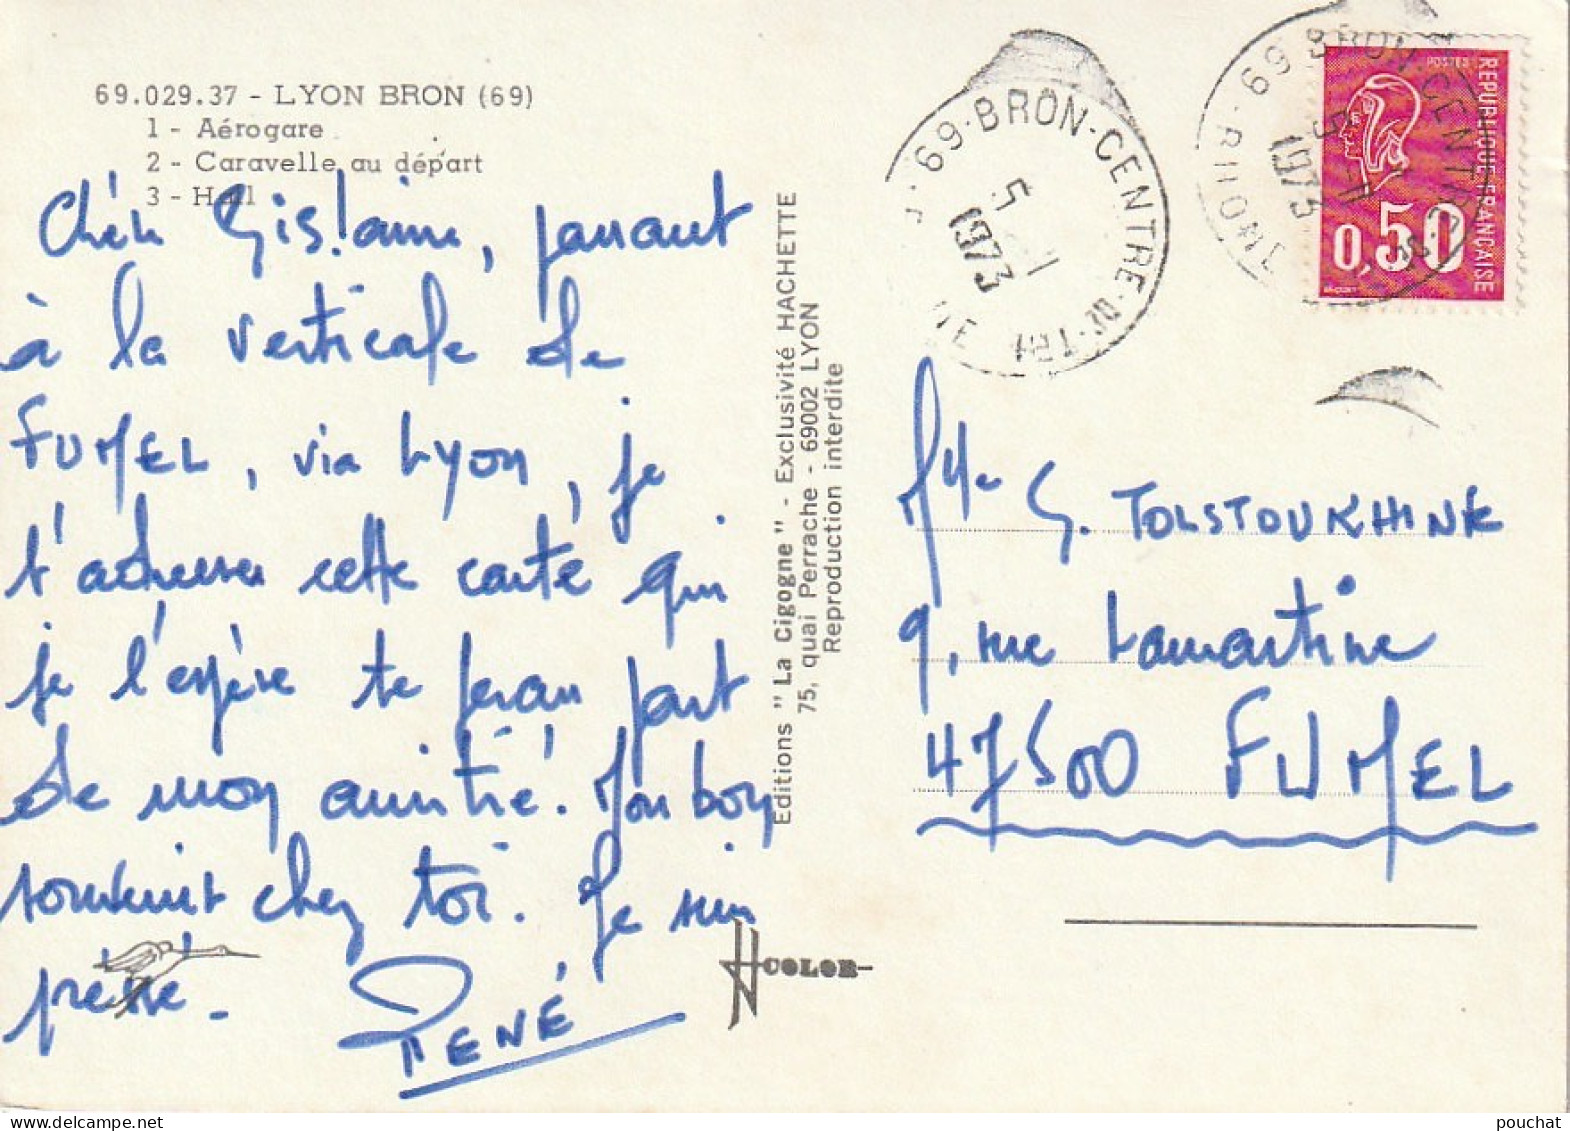 69.029.37 - LYON BRON (69)
1 - Aérogare
2 - Caravelle au départ
3 - Hall
Chère Gislaine, passant
à la verticale de
FUMEL, via Lyon, je
t'adresse cette carte qui
je l'espère te feras part
de mon amitié. Mon bon
souvenir chez toi. Je suis
pressé.
RENÉ
Editions " La Cigogne " - Exclusivité HACHETTE
75, quai Perrache - 69002 LYON
Reproduction interdite
COLOR
69-BRON-CENTRE-DE-TRI
5 - 1
1973
69-BRON-CENTRE
RHONE
5 - 1
1973
POSTES
REPUBLIQUE FRANÇAISE
0,50
Mlle G. TOLSTOUKHINE
9, rue Lamartine
47500 FUMEL
pouchat